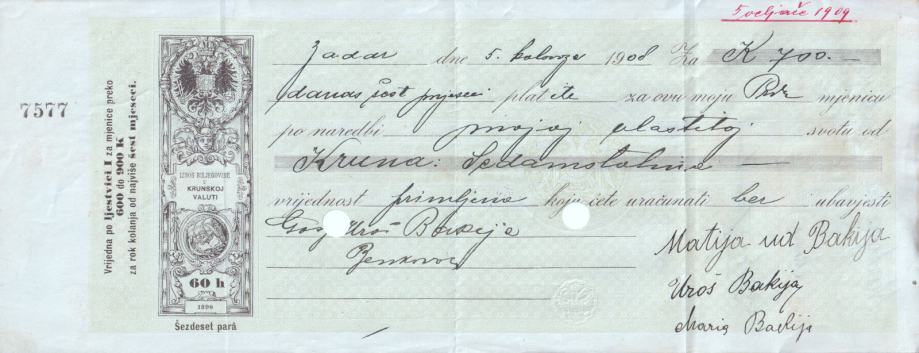 5 veljače 1909
7577
Vrijedna po ljestvici I za mjenice preko
600 do 900 K
za rok kolanja od najviše šest mjeseci.
IZNOS BILJEGOVINE
U
KRUNSKOJ
VALUTI
60 h
1898
Šezdeset parâ
Zadar dne 5. kolovoza 1908 Za K 700.—
danas šest mjeseci platite za ovu moju Prvu mjenicu
po naredbi mojoj vlastitoj svotu od
Kruna: Sedamstotina —
vrijednost primljena koju ćete uračunati bez ubavjesti
Gosp Uroš Bakija
Benkovac
Matija ud Bakija
Uroš Bakija
Maria Bakija